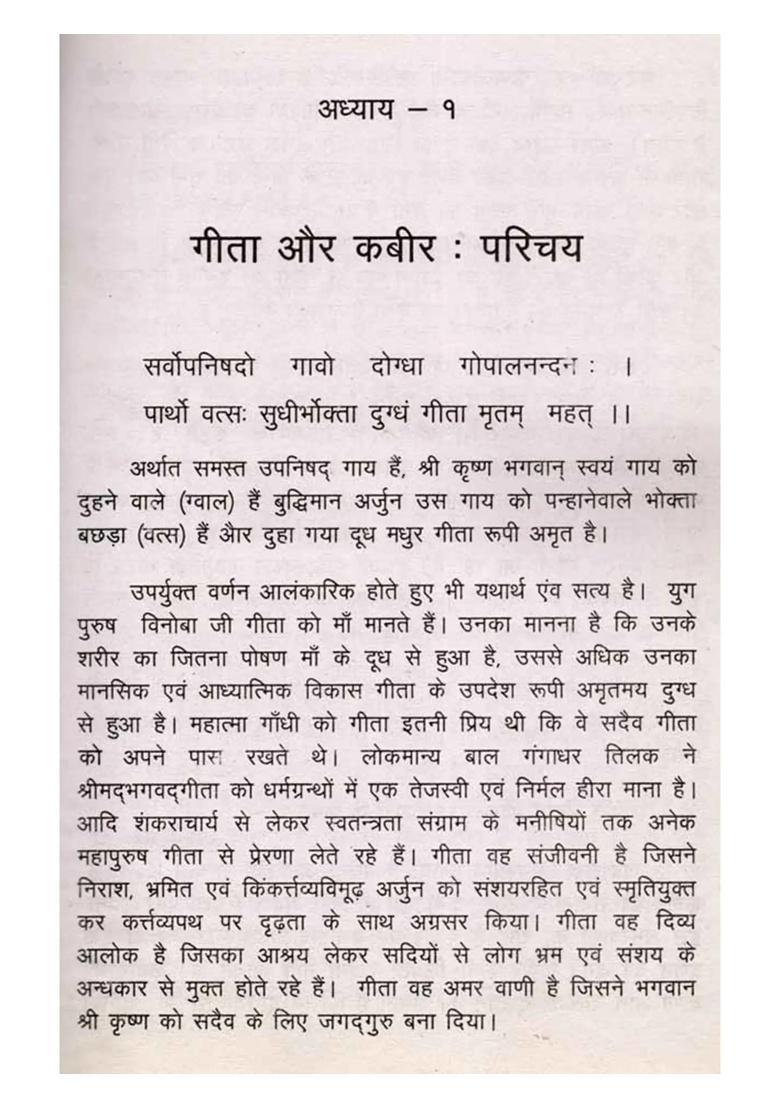 अध्याय – १
गीता और कबीर : परिचय
सर्वोपनिषदो गावो दोग्धा गोपालनन्दन : ।
पार्थो वत्सः सुधीर्भोक्ता दुग्धं गीता मृतम् महत् ।।
अर्थात समस्त उपनिषद् गाय हैं, श्री कृष्ण भगवान् स्वयं गाय को
दुहने वाले (ग्वाल) हैं बुद्धिमान अर्जुन उस गाय को पन्हानेवाले भोक्ता
बछड़ा (वत्स) हैं और दुहा गया दूध मधुर गीता रूपी अमृत है।
उपर्युक्त वर्णन आलंकारिक होते हुए भी यथार्थ एंव सत्य है। युग
पुरुष विनोबा जी गीता को माँ मानते हैं। उनका मानना है कि उनके
शरीर का जितना पोषण माँ के दूध से हुआ है, उससे अधिक उनका
मानसिक एवं आध्यात्मिक विकास गीता के उपदेश रूपी अमृतमय दुग्ध
से हुआ है। महात्मा गाँधी को गीता इतनी प्रिय थी कि वे सदैव गीता
को अपने पास रखते थे। लोकमान्य बाल गंगाधर तिलक ने
श्रीमद्भगवद्गीता को धर्मग्रन्थों में एक तेजस्वी एवं निर्मल हीरा माना है।
आदि शंकराचार्य से लेकर स्वतन्त्रता संग्राम के मनीषियों तक अनेक
महापुरुष गीता से प्रेरणा लेते रहे हैं। गीता वह संजीवनी है जिसने
निराश, भ्रमित एवं किंकर्त्तव्यविमूढ़ अर्जुन को संशयरहित एवं स्मृतियुक्त
कर कर्त्तव्यपथ पर दृढ़ता के साथ अग्रसर किया। गीता वह दिव्य
आलोक है जिसका आश्रय लेकर सदियों से लोग भ्रम एवं संशय के
अन्धकार से मुक्त होते रहे हैं। गीता वह अमर वाणी है जिसने भगवान
श्री कृष्ण को सदैव के लिए जगद्गुरु बना दिया।